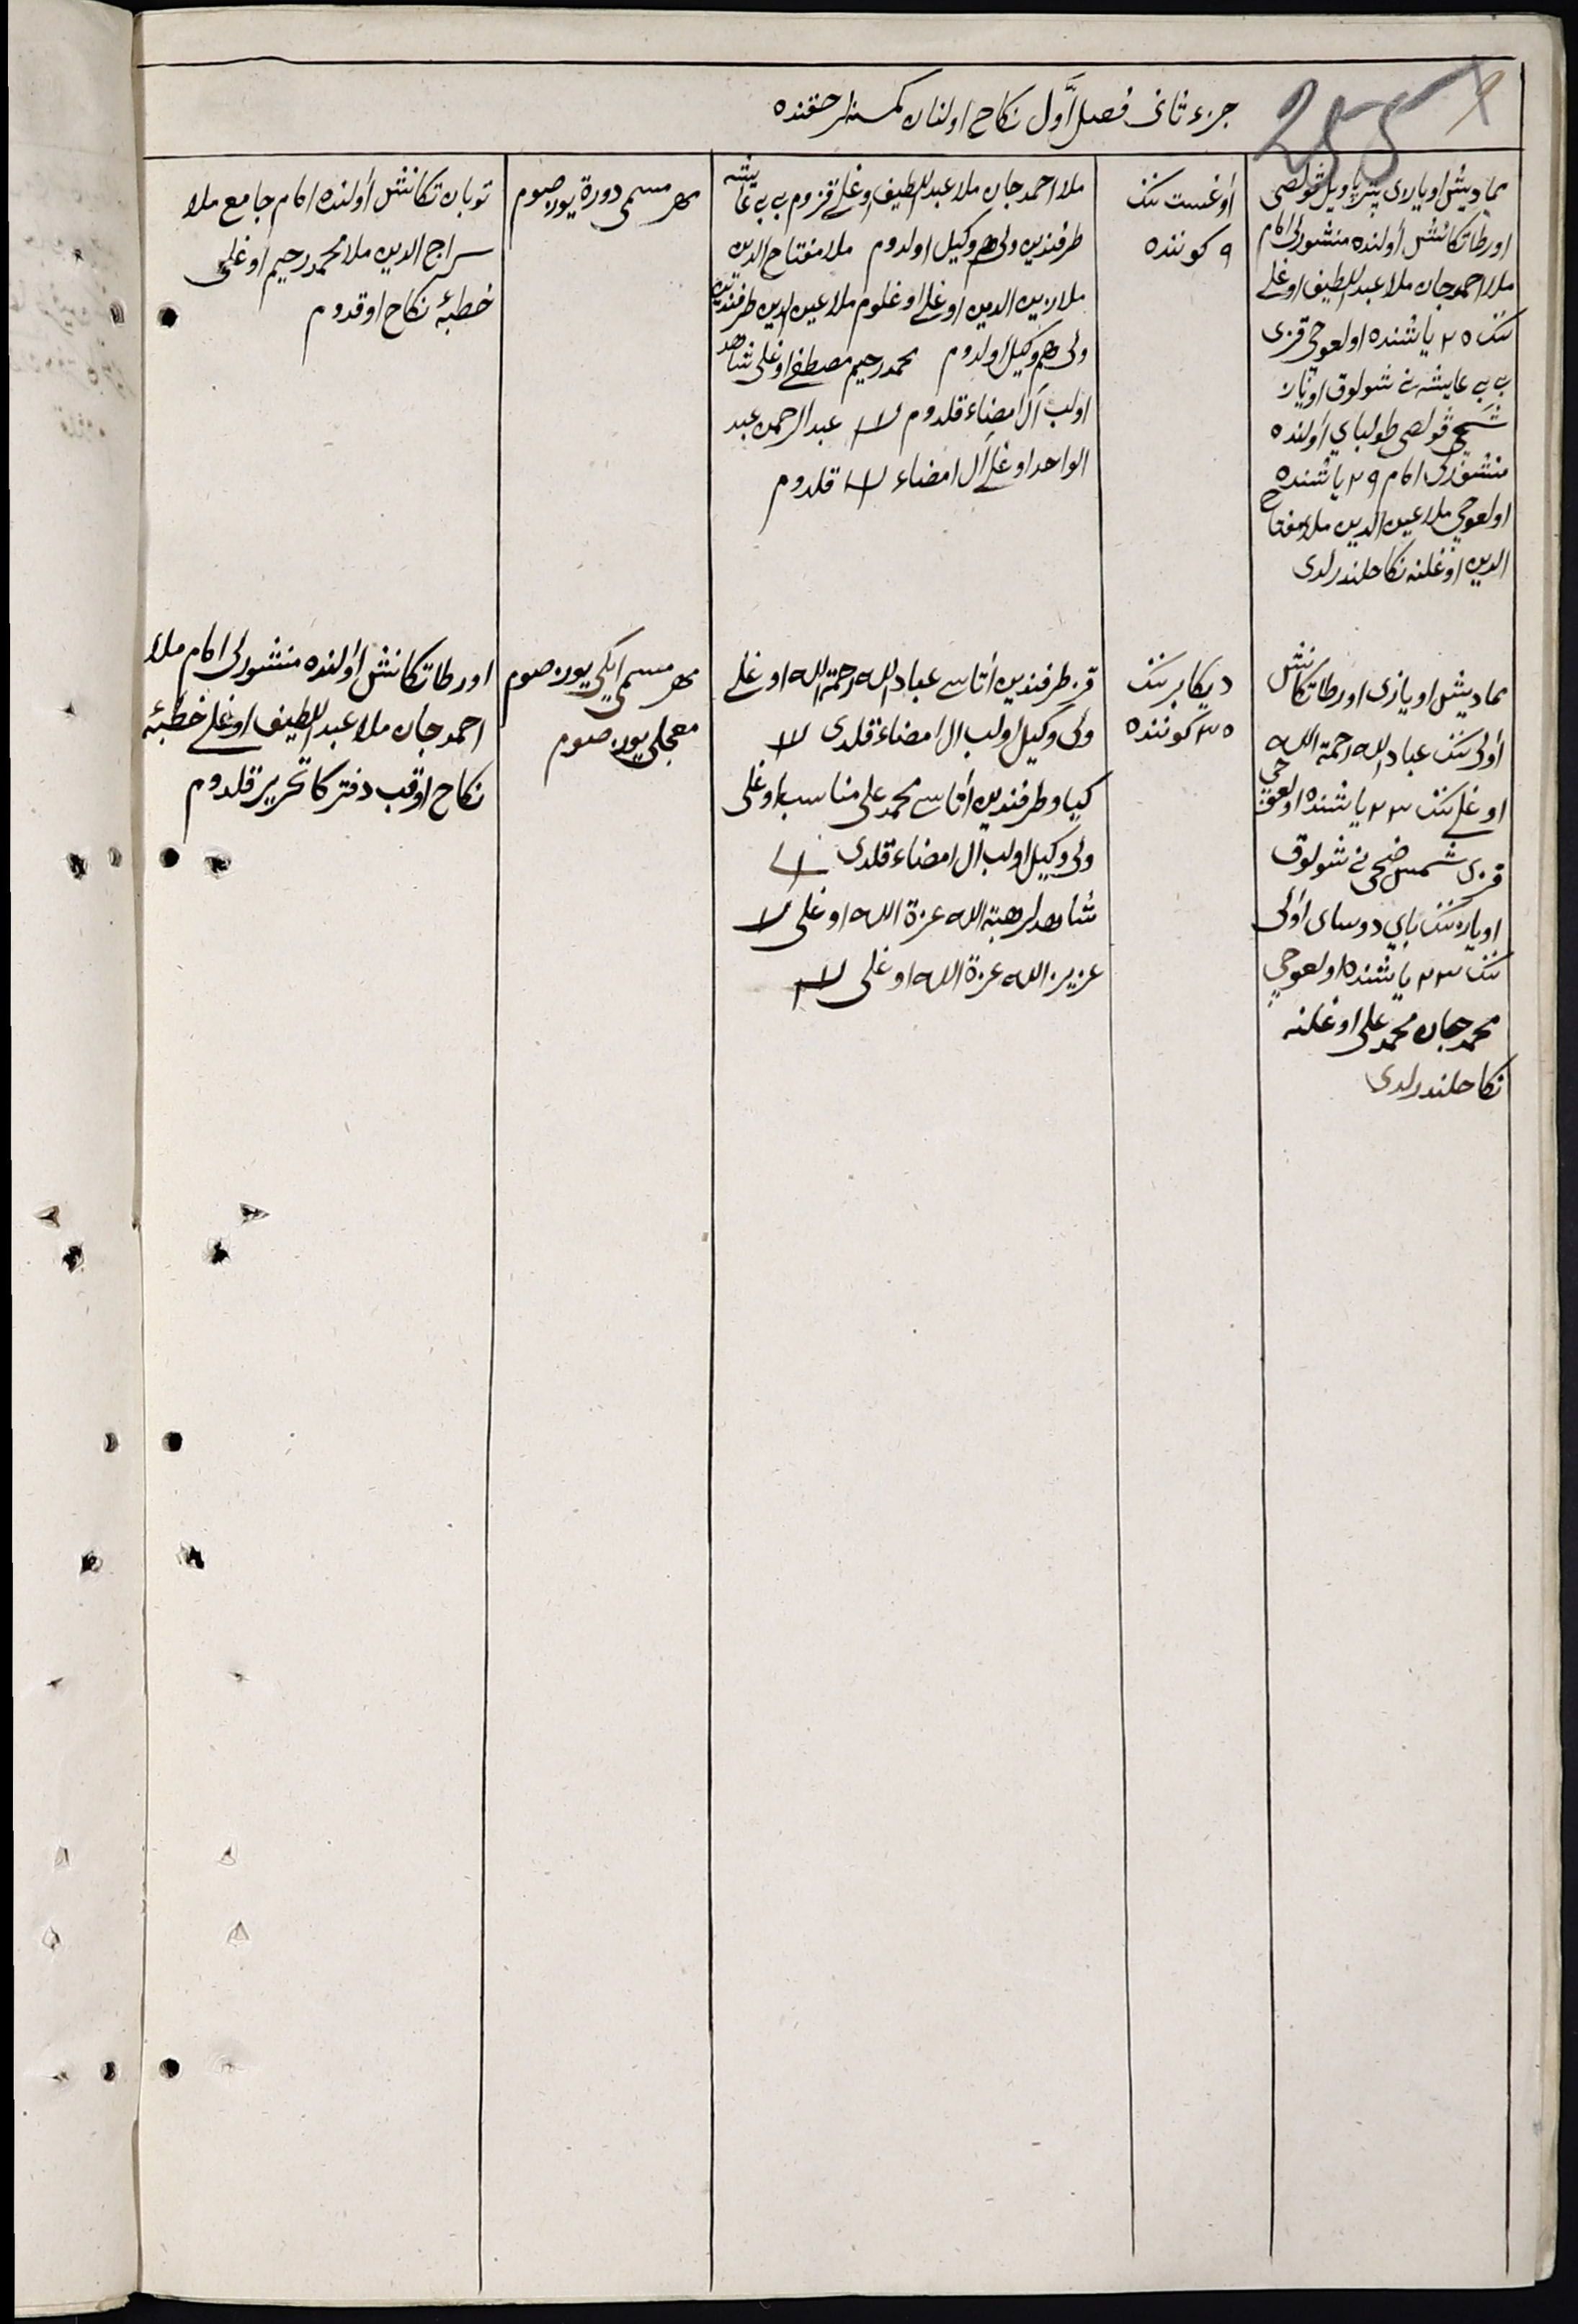 255
جزء ثانی فصل أوّل نكاح اولنان كمسنه‌لر حقنده
ممادیش اویازی پتر پاویل ڤولصی
اورطا تكانش أولنده منشورلی امام
ملا احمدجان ملا عبد اللطیف اوغلی
ننک ٢٥ یاشنده اولغوجی قزی
بی بی عایشه نی شولوق اویازن
شمچی ڤولصی طولبای أولنده
منشورلی امام ٢٩ یاشنده
اولغوجی ملا عین الدین ملا مفتاح
الدین اوغلنه نكاحلندرلدی
أوغست ننک
٩ كوننده
ملا احمدجان ملا عبد اللطیف اوغلی قزوم بی بی عایشه
طرفندین ولی هم وكیل اولدوم ملا مفتاح الدین
ملا زین الدین اوغلی اوغلوم ملا عین الدین طرفندین
ولی هم وكیل اولدوم محمدرحیم مصطفی اوغلی شاهد
اولب ال امضاء قلدوم عبد الرحمن عبد
الواحد اوغلی ال امضاء قلدوم
مهر مسمی دورة یوز صوم
توبان تكانش أولنده امام جامع ملا
سراج الدین ملا محمدرحیم اوغلی
خطبۀ نكاح اوقدوم
ممادیش اویازی اورطا تكانش
أولی ننک عباد الله رحمة الله
اوغلی ننک ٢٣ یاشنده اولغوجی
قزی شمس ضحی نی شولوق
اویازننک بای دوسای أولی
ننک ٢٣ یاشنده اولغوجی
محمدجان محمدعلی اوغلنه
نكاحلندرلدی
دیكابر ننک
٣٥ كوننده
قز طرفندین أتاسی عباد الله رحمة الله اوغلی
ولی وكیل اولب ال امضاء قلدی
كیاو طرفندین أتاسی محمدعلی مناسب اوغلی
ولی وكیل اولب ال امضاء قلدی
شاهدلر هبة الله عزة الله اوغلی
عزیز الله عزة الله اوغلی
مهر مسمی ایكی یوز صوم
معجلی یوز صوم
اورطا تكانش أولنده منشورلی امام ملا
احمدجان ملا عبد اللطیف اوغلی خطبۀ
نكاح اوقب دفتركا تحریر قلدوم